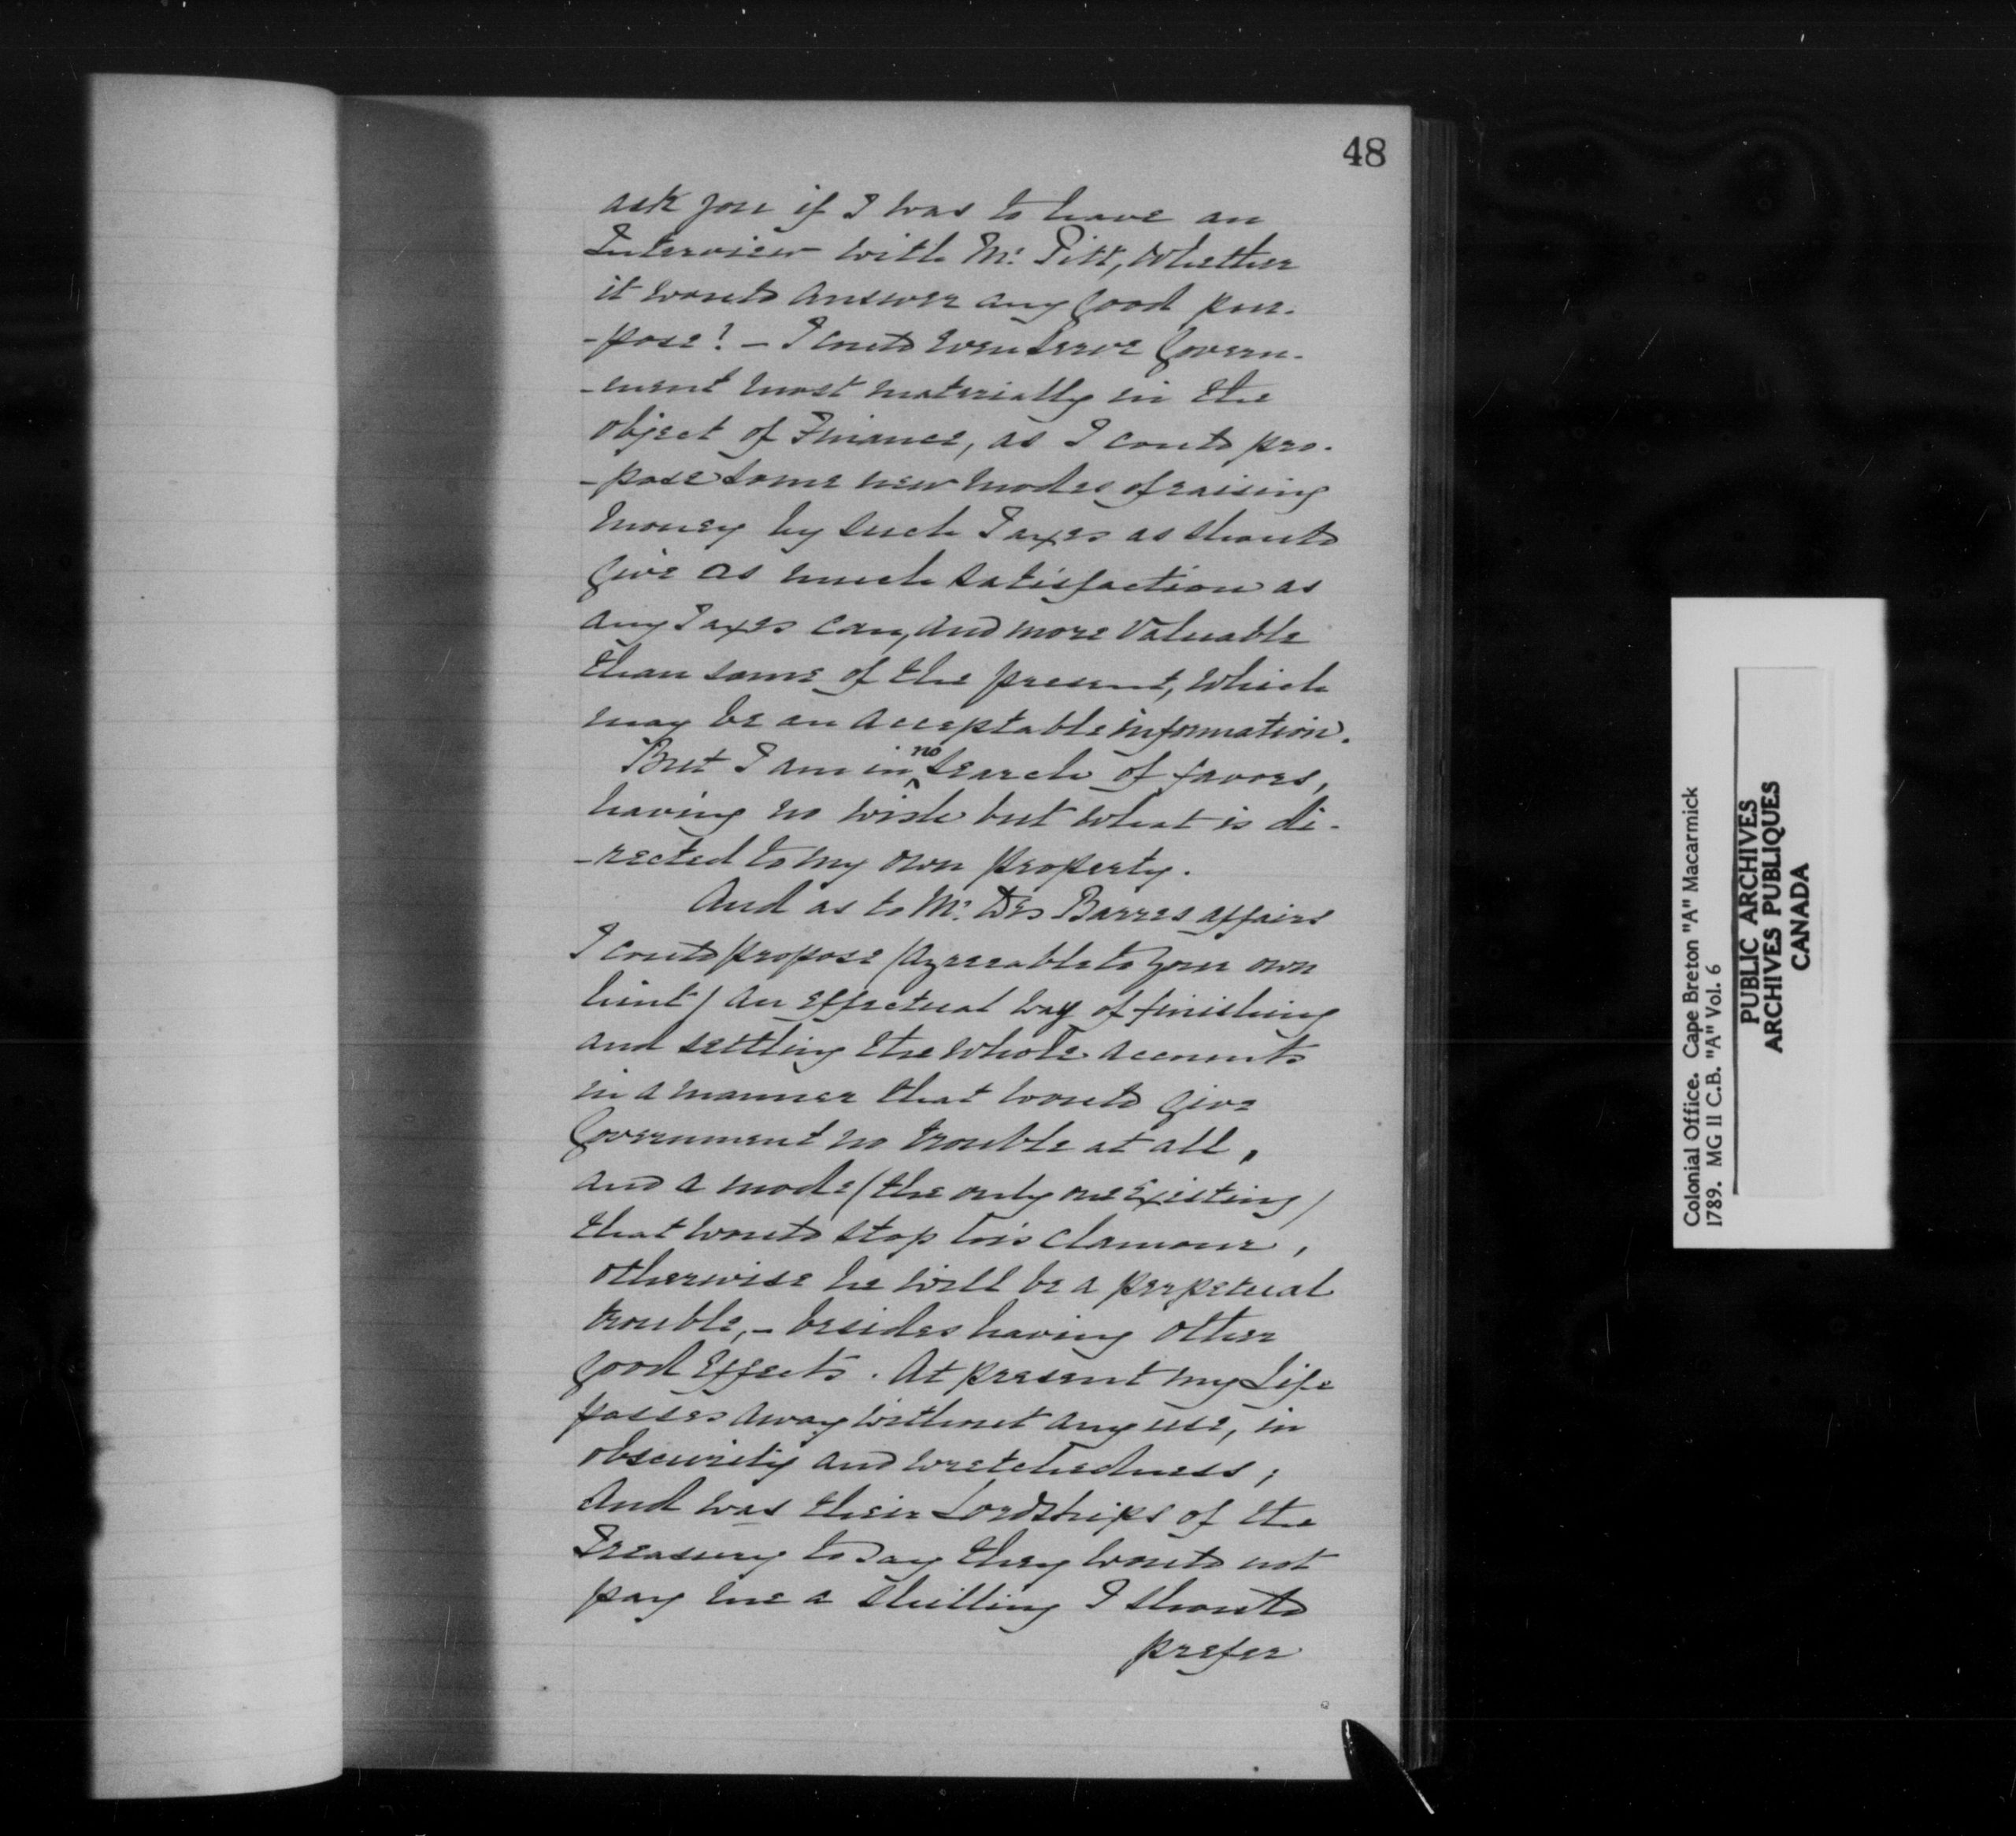 48
ask you if I was to have an
Interview with Mr. Pitt, whether
it would answer any good pur-
-pose? - I could even serve Govern-
-ment most materially in the
object of Finance, as I could pro-
-pose some new modes of raising
money by such Taxes as should
give as much satisfaction as
any Taxes can, and more valuable
than some of the present, which
may be an acceptable information.
But I am in no search of favors,
having no wish but what is di-
-rected to my own property.
And as to Mr. Des Barres affairs
I could propose (agreeable to your own
hint) an effectual way of finishing
and settling the whole accounts
in a manner that would give
Government no trouble at all,
and a mode (the only one existing)
that would stop his clamour,
otherwise he will be a perpetual
trouble, - besides having other
good Effects. At present my Life
passes away without any use, in
obscurity and wretchedness;
And was their Lordships of the
Treasury to say they would not
pay me a shilling I should
prefer
Colonial Office. Cape Breton "A" Macarmick
1789. MG II C.B. "A" Vol. 6
PUBLIC ARCHIVES
ARCHIVES PUBLIQUES
CANADA